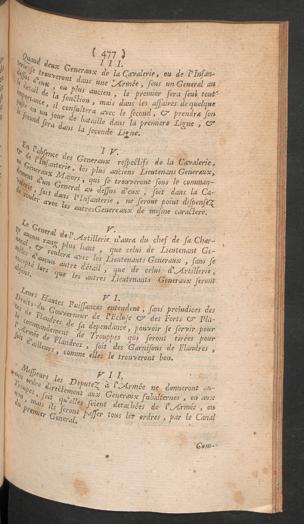 ( 477 )
III.
Quand deux Generaux de la Cavalerie, ou de l'Infan-
terie se trouveront dans une Armée, sous un General au
dessus d'eux ; ou plus ancien, le premier fera seul tout
le détail de sa fonction, mais dans les affaires de quelque
importance, il consultera avec le second, & prendra son
poste au un jour de bataille dans la premiere Ligne, &
le second sera dans la seconde Ligne.
IV.
En l'absence des Generaux respectifs de la Cavalerie,
ou de l'Infanterie, les plus anciens Lieutenans Generaux,
ou Generaux Majors, qui se trouveront sous le comman-
dement d'un General au dessus d'eux, soit dans la Ca-
valerie, soit dans l'Infanterie, ne seront point dispensez
de rouler avec les autres Generaux de mesme caractere.
V.
Le General de l'Artillerie n'aura du chef de sa Char-
ge aucun rang plus haut, que celui de Lieutenant Ge-
neral, & roulera avec les Lieutenants Generaux, sans se
mêler d'aucun autre détail, que de celui d'Artillerie,
lors que les autres Lieutenants Generaux seront
VI.
Leurs Hautes Puissances entendent, sans prejudices des
Droits du Gouverneur de l'Ecluse & des Forts & Pla-
ces de Flandres de sa dependance, pouvoir se servir pour
le commandement de Trouppes qui seront tirées pour
l'Armée de Flandres, soit des Garnisons de Flandres,
soit d'ailleurs, comme elles le trouveront bon.
VII.
Messieurs les Deputez à l'Armée ne donneront au-
cun ordre directement aux Generaux subalternes, ou aux
Trouppes, soit qu'elles soient detachées de l'Armée, ou
non, mais ils feront passer tous les ordres, par le Canal
du premier General.
Com-